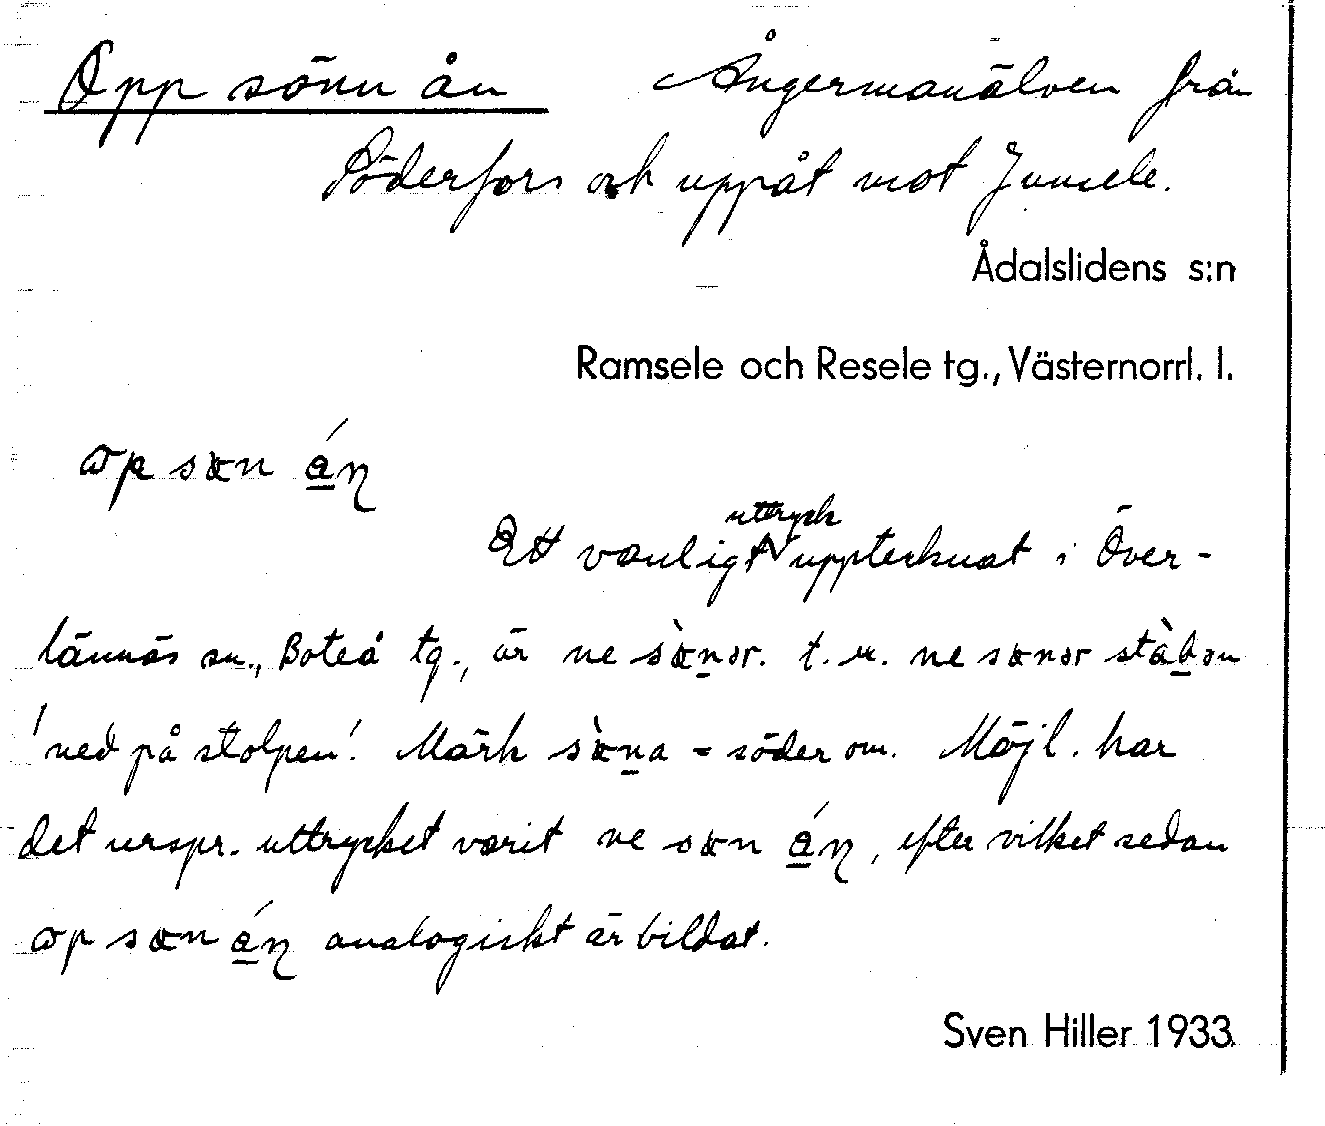 Opp sönn ån Ångermanälven från
Söderfors och uppåt mot Junsele.
Ådalslidens s:n
Ramsele och Resele tg., Västernorrl. l.
ɷp sɶn án̲
Ett vanligt uttryck uppteknat i Över-
lännäs sn., Boteå tg., är ne sɶ̀nər. t. ex. ne sɶnər
'ned på stolpen'. Märk sɶ̀na = söder om. Möjl. har
det urspr. uttrycket varit ne sɶn án̲, efter vilket sedan
ɷp sɶn án̲ analogiskt är bildat.
Sven Hiller 1933.